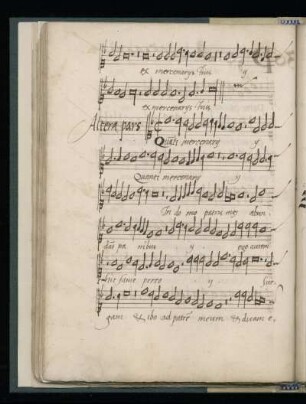 ex mercenarys tuis y
ex mercenarys tuis
Altera pars
Quāti mercenary y
Quanti mercenary y
In do mo patris mei abun
dāt pa nibus y ego autem
hic fame pereo y Sur
gam & ibo ad patrē meum & dicam e